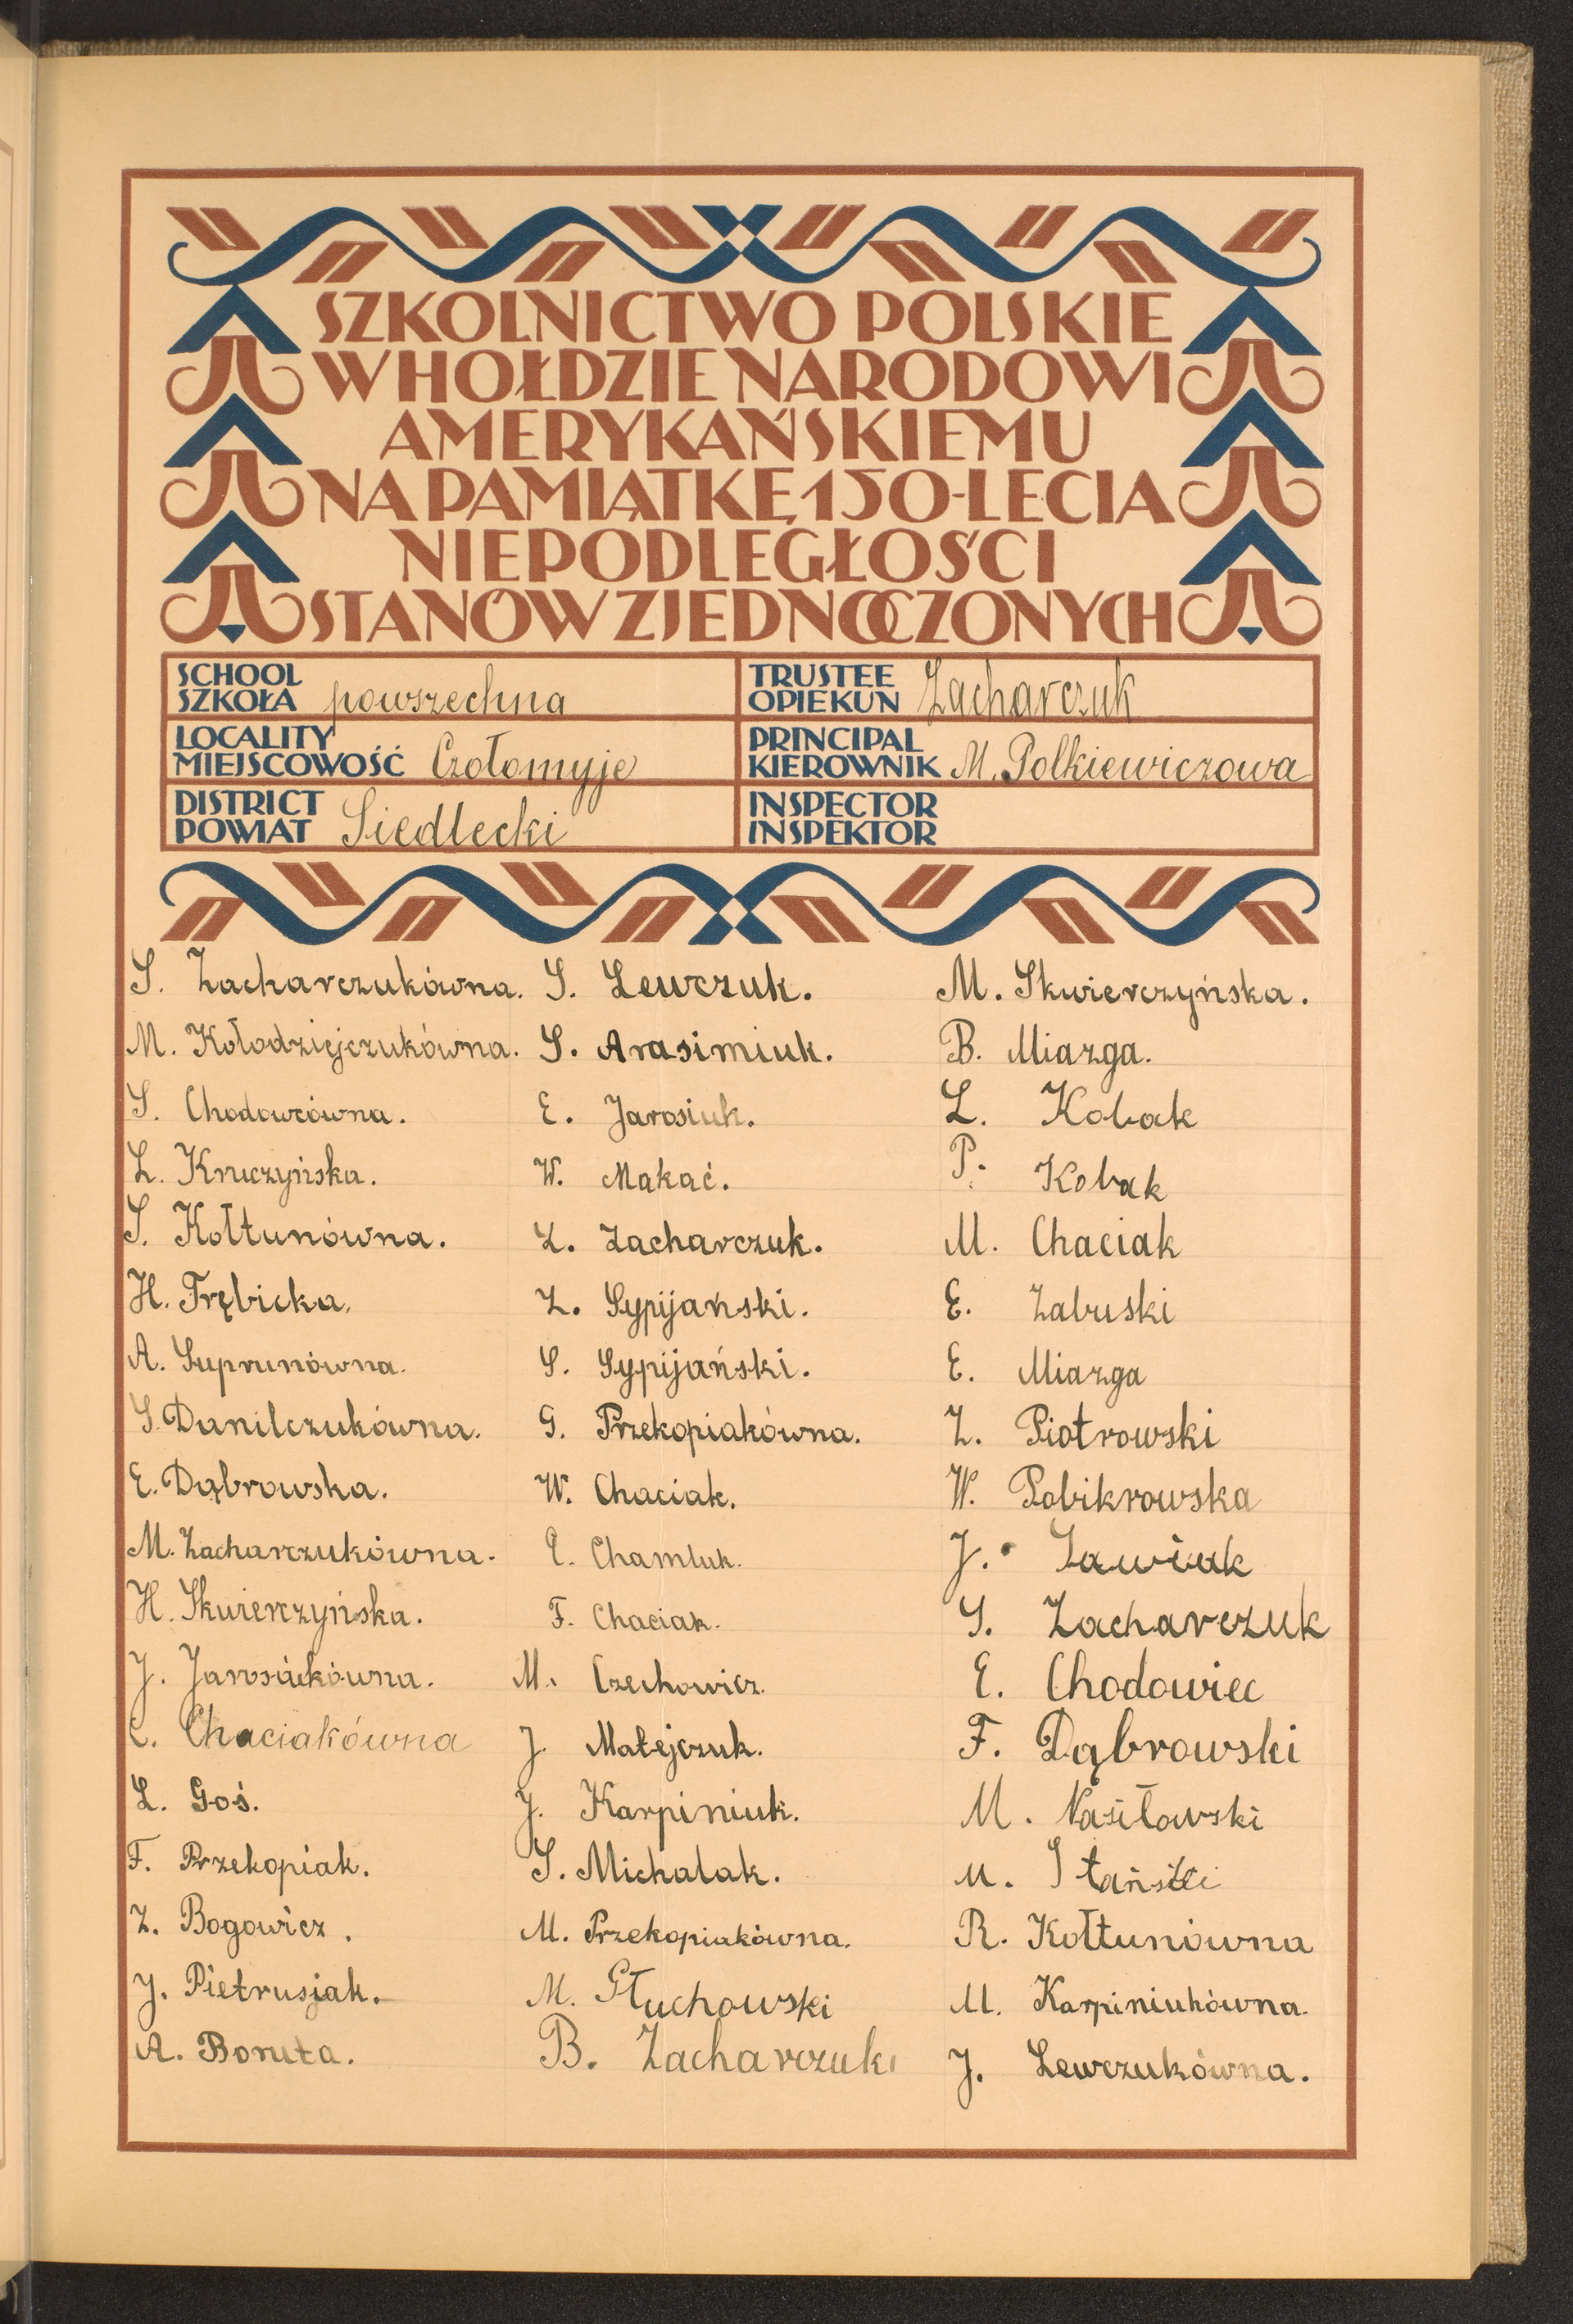 SZKOLNICTWO POLSKIE
W HOŁDZIE NARODOWI
AMERYKAŃSKIEMU
NA PAMIĄTKĘ 150-LECIA
NIEPODLEGŁOŚCI
STANÓW ZJEDNOCZONYCH
SCHOOL
SZKOŁA powszechna
TRUSTEE
OPIEKUN Zacharczuk
LOCALITY
MIEJSCOWOŚĆ Czołomyje
PRINCIPAL
KIEROWNIK M. Polkiewiczowa
DISTRICT
POWIAT Siedlecki
INSPECTOR
INSPEKTOR
S. Zacharczukówna.
M. Kołodziejczukówna.
S. Chodowcówna.
L. Kruczyńska.
S. Kołtunówna.
H. Trębicka.
A. Suprunówna.
S. Danilczukówna.
E. Dąbrowska.
M. Zacharczukówna.
H. Skwierczyńska.
J. Jarosiukówna.
C. Chaciakówna
L. Goś.
F. Przekopiak.
Z. Bogowicz.
J. Pietrusiak.
A. Boruta.
S. Lewczuk.
S. Arasimiuk.
E. Jarosiuk.
W. Makać.
Z. Zacharczuk.
Z. Sypijański.
S. Sypijański.
G. Przekopiakówna.
W. Chaciak.
E. Chamluk.
F. Chaciak.
M. Czechowicz.
J. Matejczuk.
J. Karpiniuk.
S. Michalak.
M. Przekopiakówna.
M. Głuchowski
B. Zacharczuk
M. Skwierczyńska.
B. Miazga.
L. Kobak
P. Kobak
M. Chaciak
E. Zabuski
E. Miazga
Z. Piotrowski
W. Pobikrowska
J. Zawiak
S. Zacharczuk
E. Chodowiec
F. Dąbrowski
M. Nasiłowski
M. Stański
R. Kołtunówna
M. Karpiniukówna.
J. Lewczukówna.